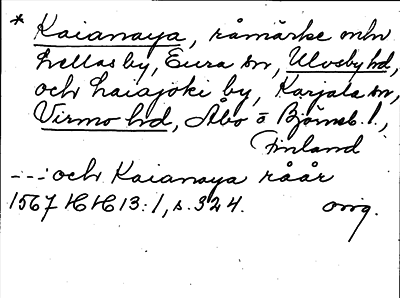 * Kaianaya, råmärke mln
Lellas by, Eura sn, Ulvsby hd,
och Laiajoki by, Karjala sn,
Virmo hd, Åbo o Björneb. l.,
Finland
---: och Kaianaya råår
1567 HH 13:1, s. 324. orig.